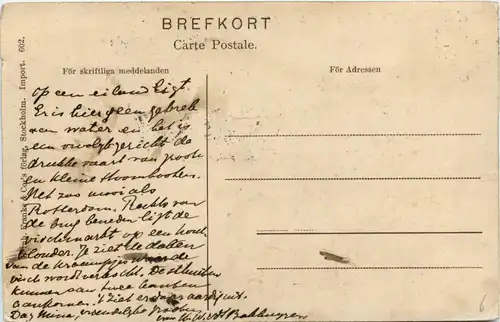 BREFKORT
Carte Postale.
För skriftliga meddelanden
För Adressen
Franke & Co:s förlag, Stockholm. Import. 602.
op een eiland ligt.
Er is hier geen gebrek
aan water en het is
een vrolijk gezicht de
drukke vaart van groote
en kleine stoombooten.
Net zoo mooi als
Rotterdam. Rechts van
de brug beneden ligt de
vischmarkt op een
vlonder. Je ziet de daken
van de kraampjes waar de
visch wordt verkocht. De schuiten
kunnen aan twee kanten
aankomen. 't Ziet er daar aardig uit.
Dag Mina, vriendelijke groeten
van W.v.d. Bakhuyzen
6